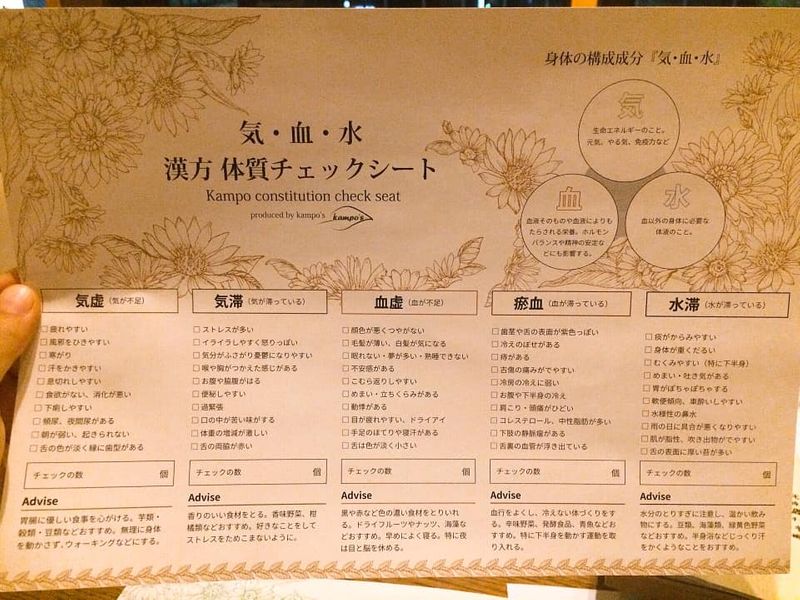 身体の構成成分『気・血・水』
気・血・水
漢方 体質チェックシート
Kampo constitution check seat
produced by kampo's kampo's
気
生命エネルギーのこと。
元気、やる気、免疫力など
血
血液そのものや血液によりも
たらされる栄養。ホルモン
バランスや精神の安定な
どにも影響する。
水
血以外の身体に必要な
体液のこと。
気虚（気が不足）
□ 疲れやすい
□ 風邪をひきやすい
□ 寒がり
□ 汗をかきやすい
□ 息切れしやすい
□ 食欲がない、消化が悪い
□ 下痢しやすい
□ 頻尿、夜間尿がある
□ 朝が弱い、起きられない
□ 舌の色が淡く縁に歯型がある
チェックの数 個
Advise
胃腸に優しい食事を心がける。芋類・
穀類・豆類などおすすめ。無理に身体
を動かさず、ウォーキングなどにする。
気滞（気が滞っている）
□ ストレスが多い
□ イライラしやすく怒りっぽい
□ 気分がふさがり憂鬱になりやすい
□ 喉や胸がつかえた感じがある
□ お腹や脇腹がはる
□ 便秘しやすい
□ 過緊張
□ 口の中が苦い味がする
□ 体重の増減が激しい
□ 舌の両脇が赤い
チェックの数 個
Advise
香りのいい食材をとる。香味野菜、柑
橘類などおすすめ。好きなことをして
ストレスをためこまないように。
血虚（血が不足）
□ 顔色が悪くつやがない
□ 毛髪が薄い、白髪が気になる
□ 眠れない・夢が多い・熟睡できない
□ 不安感がある
□ こむら返りしやすい
□ めまい・立ちくらみがある
□ 動悸がある
□ 目が疲れやすい、ドライアイ
□ 手足のほてりや寝汗がある
□ 舌は色が淡く小さい
チェックの数 個
Advise
黒や赤など色の濃い食材をとりいれ
る。ドライフルーツやナッツ、海藻な
どおすすめ。早めによく寝る。特に夜
は目と脳を休める。
瘀血（血が滞っている）
□ 歯茎や舌の表面が紫色っぽい
□ 冷えのぼせがある
□ 痔がある
□ 古傷の痛みがでやすい
□ 冷房の冷えに弱い
□ お腹や下半身の冷え
□ 肩こり・頭痛がひどい
□ コレステロール、中性脂肪が多い
□ 下肢の静脈瘤がある
□ 舌裏の血管が浮き出ている
チェックの数 個
Advise
血行をよくし、冷えない体づくりをす
る。辛味野菜、発酵食品、青魚などお
すすめ。特に下半身を動かす運動を取
り入れる。
水滞（水が滞っている）
□ 痰がからみやすい
□ 身体が重くだるい
□ むくみやすい（特に下半身）
□ めまい・吐き気がある
□ 胃がぽちゃぽちゃする
□ 軟便傾向、車酔いしやすい
□ 水様性の鼻水
□ 雨の日に具合が悪くなりやすい
□ 肌が脂性、吹き出物がでやすい
□ 舌の表面に厚い苔が多い
チェックの数 個
Advise
水分のとりすぎに注意し、温かい飲み
物にする。豆類、海藻類、緑黄色野菜
などおすすめ。半身浴などじっくり汗
をかくようなことをおすすめ。